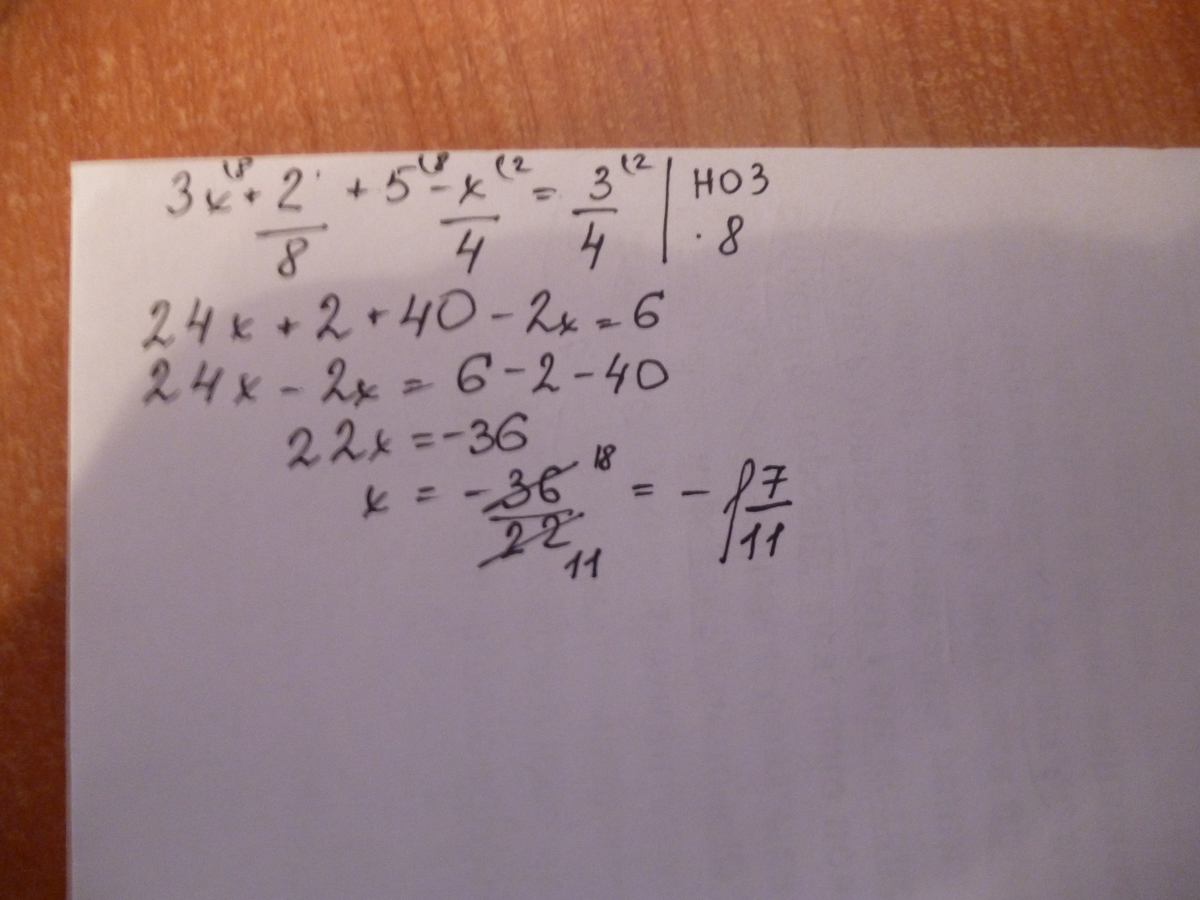 3x⁽⁸ + 2/8 + 5⁽⁸ - x⁽²/4 = 3⁽²/4 | НОЗ · 8
24x + 2 + 40 - 2x = 6
24x - 2x = 6 - 2 - 40
22x = -36
x = - 36 18/22 11 = - 1 7/11